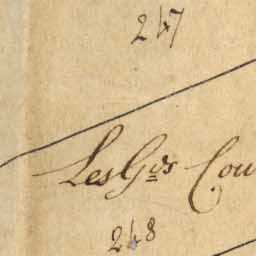 247
Les G.ds Cou
248